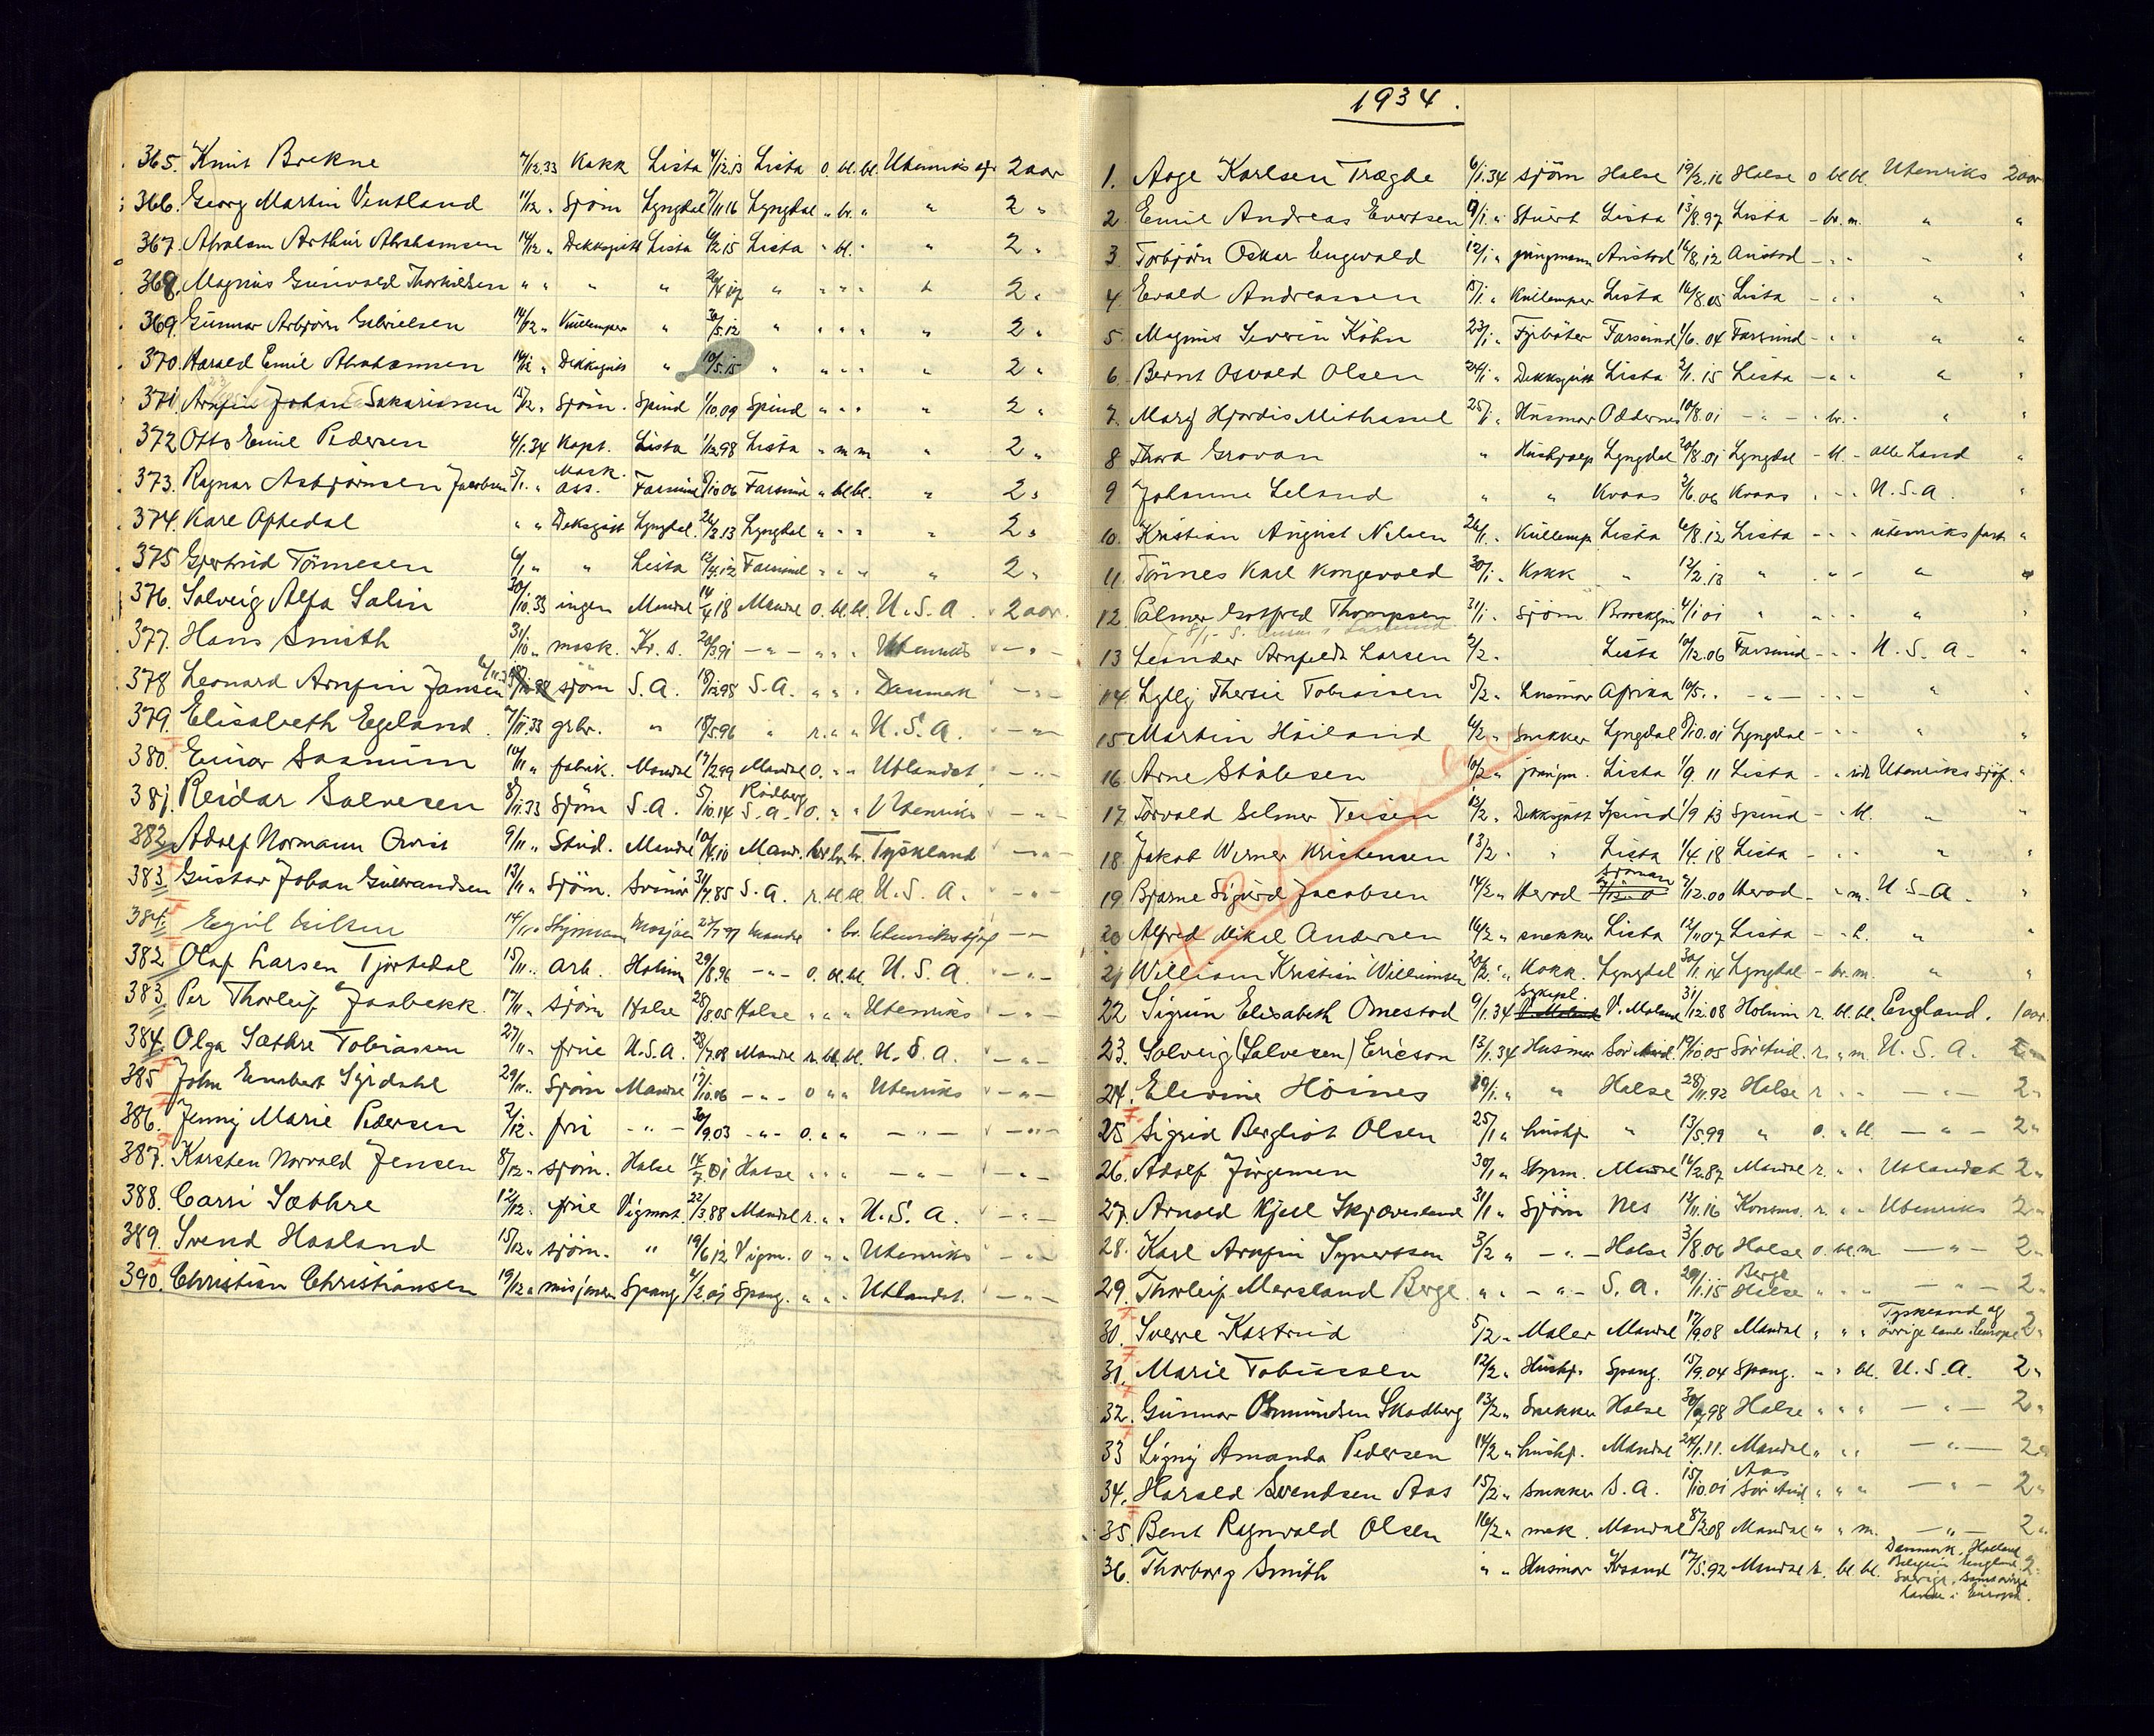 365. Knut Brekne 7/12.33 Kokk Lista 4/12.13 Lista o. bl. bl. Utenriks 2 aar
366. Georg Martin Ventland 11/12 " Sjöm Lyngdal 7/11 16 Lyngdal " br. " " 2 "
367. Abraham Arthur Abrahamsen 14/12 " Dekksgutt Lista 6/2.15 Lista " bl. " " 2 "
368. Magnus Gunvald Thorkildsen " " " " 26/4 17 " " " " " 2 "
369. Gunnar Arbjörn Gabrielsen 14/12 " Kullemper " 30/5.12 " " " " " 2 "
370. Harald Emil Abrahamsen 14/12 " Dekksgutt " 10/5.15 " " " " " 2 "
371. Arnfin Johan Sakariassen 15/12 " Sjöm. Spind 1/10.09 Spind " " " " 2 "
372 Otto Emil Pedersen 4/1.34 Kapt. Lista 1/12.98 Lista " m m " 2 "
373. Ragnar Asbjörnsen Jacobsen 5/1. " Mask. ass. Farsund 8/10 06 Farsund " bl bl. " 2 "
374. Kare Opteda l " " Deksgutt Lyngdal. 26/2.13 Lyngdal " " " " 2 "
375 Gjertrud Tönnesen 6/1 " " Lista 12/4.12 Farsund " " " " 2 "
376. Solveig Alfa Salin 30/10.33 ingen Mandal 14/4 18 Mandal o. bl. bl. U.S.A. 2 aar.
377. Hans Smith 31/10 " mask. Kr. s. 20/3 91 — " — " " " Utenriks — " —
378 Leonard Arnfin Jansen sjöm S.A. 18/12 98 S.A. " " " Danmark — " —
379. Elisabeth Egeland 7/11.33 grbr. " 18/5 96 " r. " " U.S.A. — " —
380. Einar Saanum 10/11 " fabrik. Mandal 17/2.99 Mandal o. " " Utlandet — " —
381. Reidar Salvesen 8/11.33 Sjöm S.A. 5/10.14 Rödberg S.A. o. " " Utenriks — " —
382. Adolf Normann Qvist 9/11 " Stud. Mandal 10/4.10 Mand. br. br. Tyskland — " —
383. Gustav Johan Gulbrandsen 13/11 " Sjöm. Svinör 31/7.85 S.A. r. bl. bl. U.S.A. — " —
384. Egil Nilsen 14/11 " Styrmann Mosjöen 27/7 97 Mandal " br. Utenriks sjöf — " —
382. Olaf Larsen Tjortedal 15/11 " arb. Holum 29/8.96 — " — o. bl. bl. U.S.A. — " —
383. Per Thorleif Jaabekk 17/11 " sjöm Halse 28/8.05 Halse " " " Utenriks — " —
384. Olga Sæthre Tobiassen 27/11 " frue U.S.A. 28/7.08 Mandal r. bl. bl. U.S.A. — " —
385 John Engebert Syrdahl 29/11 " Sjöm Mandal 17/10.06 — " — o " " Utenriks — " —
386. Jenny Marie Pedersen 2/12. " fru — " — 30/9.03 — " — o. " " — " — — " —
387. Karsten Norvald Jensen 8/12 " sjöm. Halse 14/7.01 Halse " " " — " — — " —
388. Carri Sæthre 12/12 " frue Vigmost. 22/3 88 Mandal r. " " U.S.A. — " —
389. Svend Haaland 15/12 " sjöm. " 19/6 12 Vigm. o " " Utenriks — " —
390. Christian Christiansen 19/12 " misjonær Spang. 4/2.01 Spang. " " " Utlandet. — " —
1934.
1. Aage Karlsen Trægde 6/1.34 sjöm Halse 19/2.16 Halse o bl bl. Utenriks 2 aar
2. Emil Andreas Evertsen 9/1. " Stuert Lista 13/8.97 Lista — br. m. " "
3 Torbjörn Oskar Engwald 12/1 " jungmann Austad 16/8.12 Austad — " " " "
4 Evald Andreassen 15/1 " Kullemper Lista 16/8.05 Lista — " " " "
5. Magnus Severin Köhn 23/1 " Fyrböter Farsund 1/6.04 Farsund — " " " "
6. Bernt Osvald Olsen 24/1 " Dekksgutt Lista 2/1.15 Lista — " " " "
7. Mary Hjordis Mithassel 25/1 " Husmor Oddernes 10/8.01 — " — " br. " " "
8 Thora Grovan " Hushjælp Lyngdal 20/8.01 Lyngdal — bl — alle Land "
9 Johanne Leland " " Kvaas 2/6.06 Kvaas " " " U.S.A. "
10. Kristian August Nilsen 26/1. " Kullemp. Lista 6/8.12 Lista — " " utenriks fart "
11. Tönnes Karl Kongevold 30/1 " Kokk " 12/2.13 " " " — " "
12 Palmer Gotfred Thompsen 31/1 " Sjöm Brooklyn 4/1 01 " " " " " "
13 Leander Arnfeldt Larsen 2/2 " Lista 10/12.06 Farsund — " " U.S.A. "
14. Lylly Thersie Tobiassen 5/2 " husmor Afrika 10/5.. — " — — " " " "
15 Martin Höiland 6/2 " Snekker Lyngdal 8/10.01 Lyngdal — " " " "
16. Arne Stålesen 10/2 " jungm. Lista 1/9 11 Lista — " Utenriks sjöf. "
17. Torvald Selmer Teisen 12/2 " Dekksgutt Spind 1/9 13 Spind — " bl. " "
18. Jakob Werner Kristensen 13/2 " " Lista 1/4.18 Lista — " " " "
19 Bjarne Sigurd Jacobsen 14/2 " Herad sjöman 9/12.00 Herad — " m. U.S.A. "
20 Alfred Mikal Andersen 16/2 " snekker Lista 12/11 07 Lista — " " "
21 William Kristian Williumsen 20/2 " Kokk. Lyngdal 30/1.14 Lyngdal — br. m. " "
22 Sigrun Elisabeth Omestad 9/1.34 sykepl. V. Moland 31/12.08 Holum r. bl. bl. England. 1 aar
23. Solveig (Salvesen) Ericson 13/1.34 Husmor Sör Aud. 19/10 05 Sör Aud. r. " m. U.S.A.
24. Elevine Höines 19/1. " " Halse 28/11.92 Halse r. " " — " — 2 "
25. Sigrid Bergliot Olsen 25/1 " hushj. " 13/5.99 " o. " bl. — " — 2 "
26. Adolf Jörgensen 30/1 " Styrm. Mandal 16/2.87 Mandal r. " " Utlandet 2 "
27. Arnold Kjell Skjævesland 31/1 " Sjöm Nes 13/11.16 r. " " Utenriks 2 "
28. Karl Arnfin Syvertsen 3/2 " — " — Halse 3/8.06 Halse o. bl. m — " — 2 "
29. Thorleif Mersland Berge " " — " — S.A. 20/1.15 Berge Halse " " " — " — 2 "
30. Sverre Kastrud 5/2 " Maler Mandal 17/9.08 Mandal " " " Tyskland og övrige land i Europa 2 "
31. Marie Tobiassen 12/2 " Hushj. Spang. 15/9.04 Spang. " " bl. U.S.A. 2 "
32. Gunnar Osmundsen Skadberg 13/2 " Snekker Halse 98 Halse " " " — " — 2 "
33 Signy Amanda Pedersen 14/2 " hushj. Mandal 24/1.11. Mandal " " " — " — 2 "
34. Harald Svendsen Aas 15/2 " snekker S.A. 15/10.01 Aas Sör Aud. " " " — " — 2 "
35. Bent Ragnvald Olsen 16/2 " mek. Mandal 8/2.08 Mandal " " m. — " — 2 "
36. Thorborg Smith " " Husmor Krsand 17/5.92 Mandal r. bl bl. Danmark, Holland Belgien England Sverige, samt övrige lande i Europa. 2 "